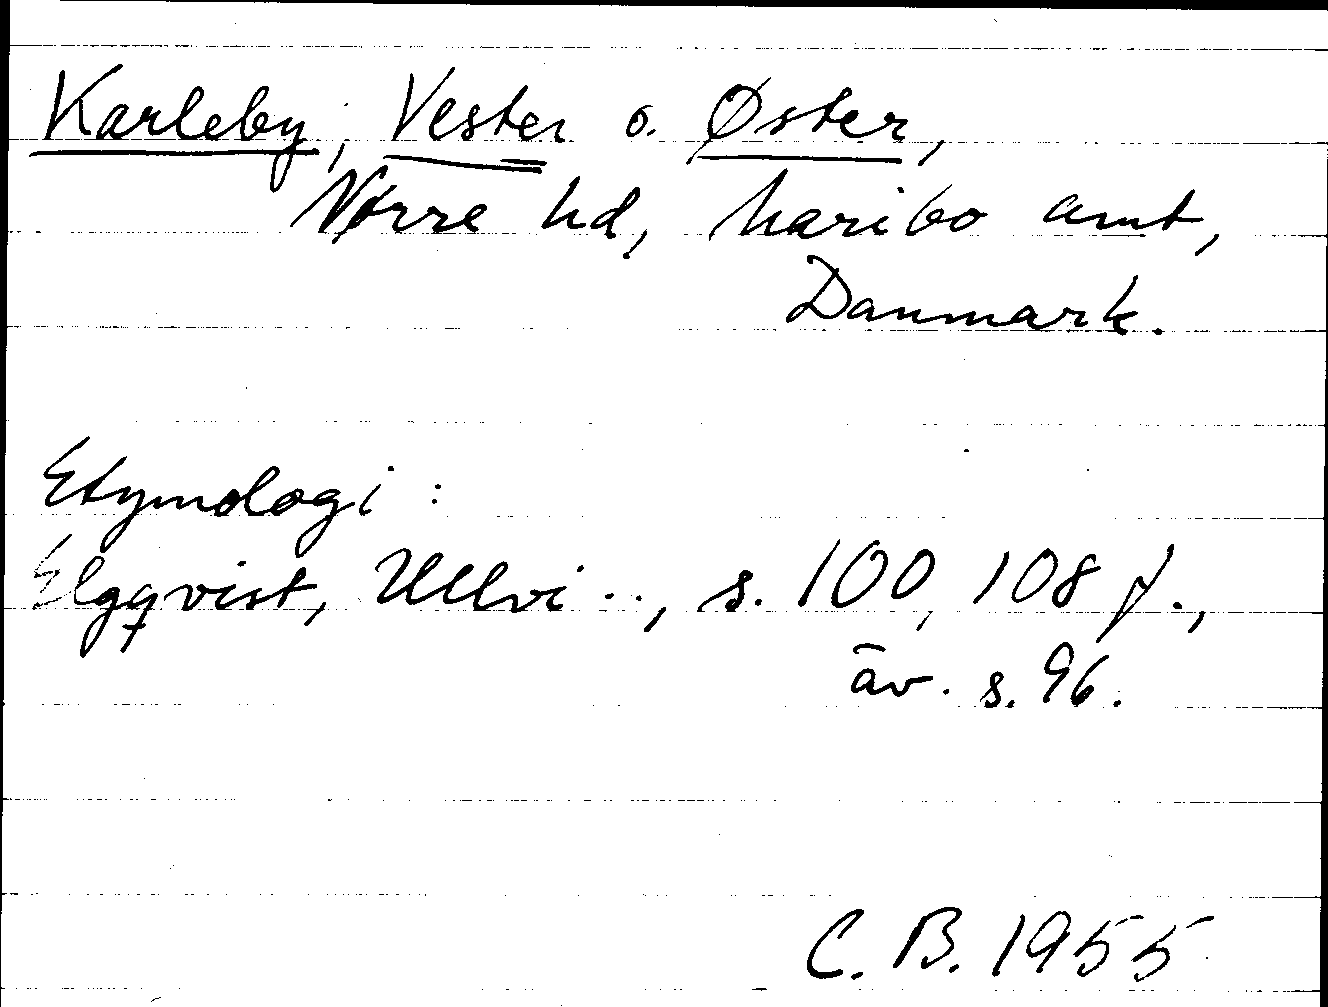 Karleby, Vester o. Øster,
Nørre hd, Maribo amt,
Danmark.
Etymologi:
Elgqvist, Ullvi.., s. 100, 108 f.,
äv. s. 96.
C. B. 1955